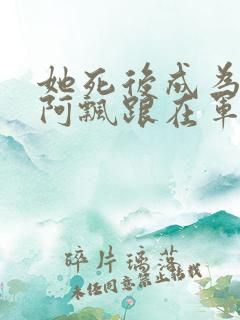 她死後成為
阿飄跟在軍
碎片璃落
未任同意禁止轉載